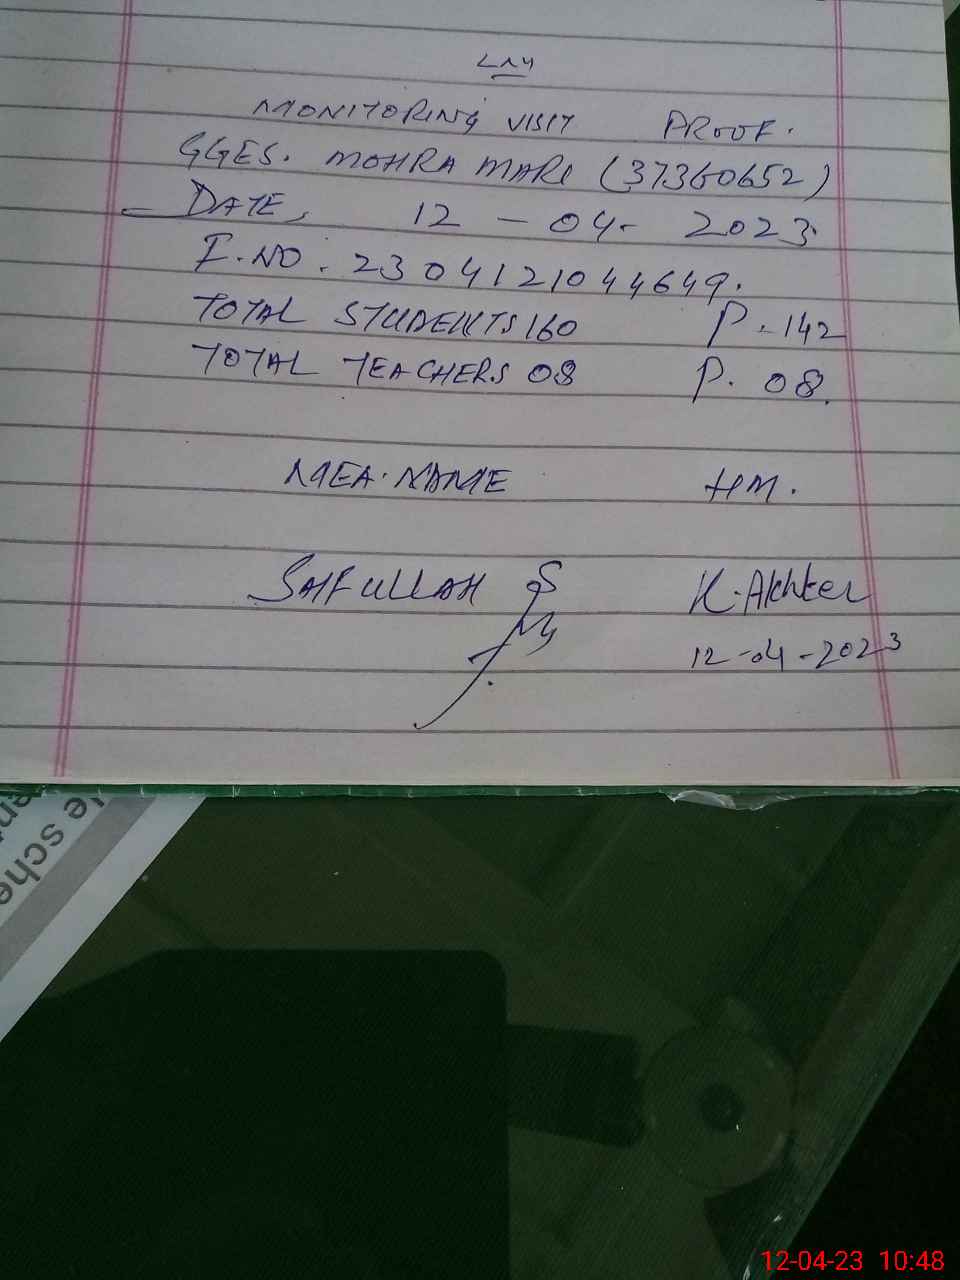 MONITORING VISIT PROOF.
GGES. MOHRA MARI (37360652)
DATE, 12 - 04 - 2023.
F.NO. 2304121044649.
TOTAL STUDENTS 160 P. 142
TOTAL TEACHERS 08 P. 08.
MEA. NAME HM.
SAIFULLAH K. Akhter
12-04-2023
le sche
12-04-23 10:48